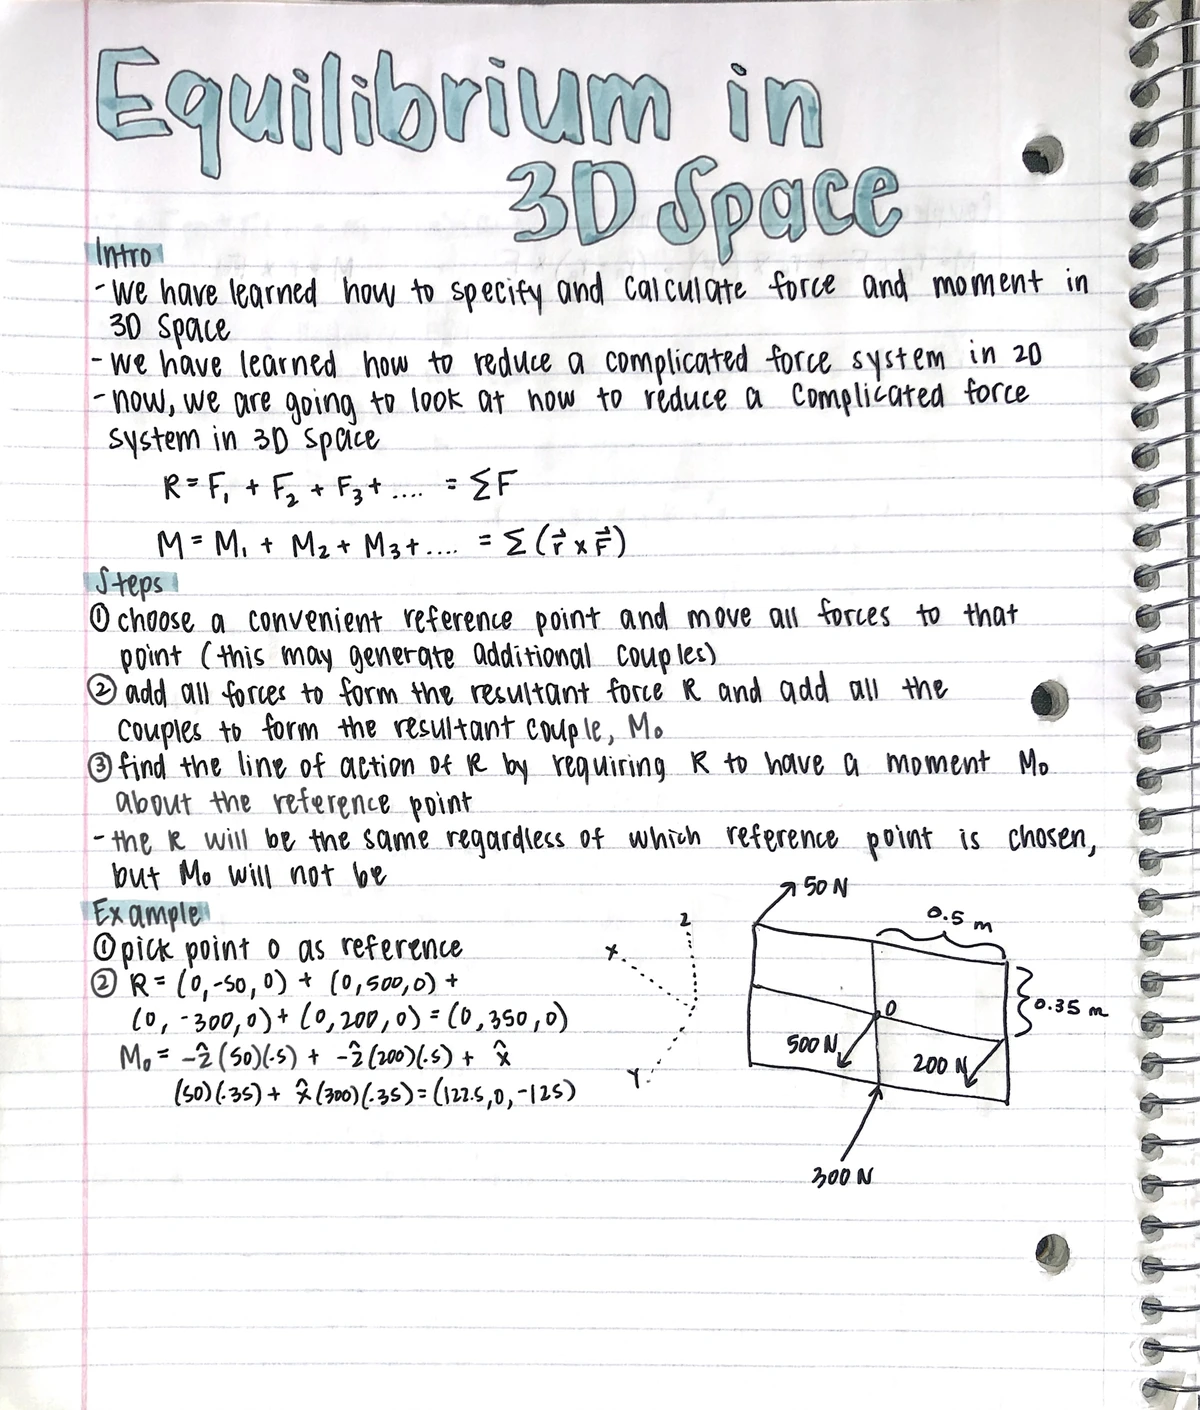 Equilibrium in
3D Space
Intro
- we have learned how to specify and calculate force and moment in
3D space
- we have learned how to reduce a complicated force system in 2D
- now, we are going to look at how to reduce a complicated force
system in 3D space
R = F₁ + F₂ + F₃ + .... = ΣF
M = M₁ + M₂ + M₃ + .... = Σ(r⃗ x F⃗)
Steps
① choose a convenient reference point and move all forces to that
point (this may generate additional couples)
② add all forces to form the resultant force R and add all the
couples to form the resultant couple, M₀
③ find the line of action of R by requiring R to have a moment M₀
about the reference point
- the R will be the same regardless of which reference point is chosen,
but M₀ will not be
Example
① pick point O as reference
② R = (0,-50,0) + (0,500,0) +
(0,-300,0) + (0,200,0) = (0,350,0)
M₀ = -ẑ(50)(.5) + -ẑ(200)(.5) + x̂
(50)(.35) + x̂(300)(.35) = (122.5,0,-125)
50 N
0.5 m
z
x
0.35 m
O
500 N
200 N
Y
300 N